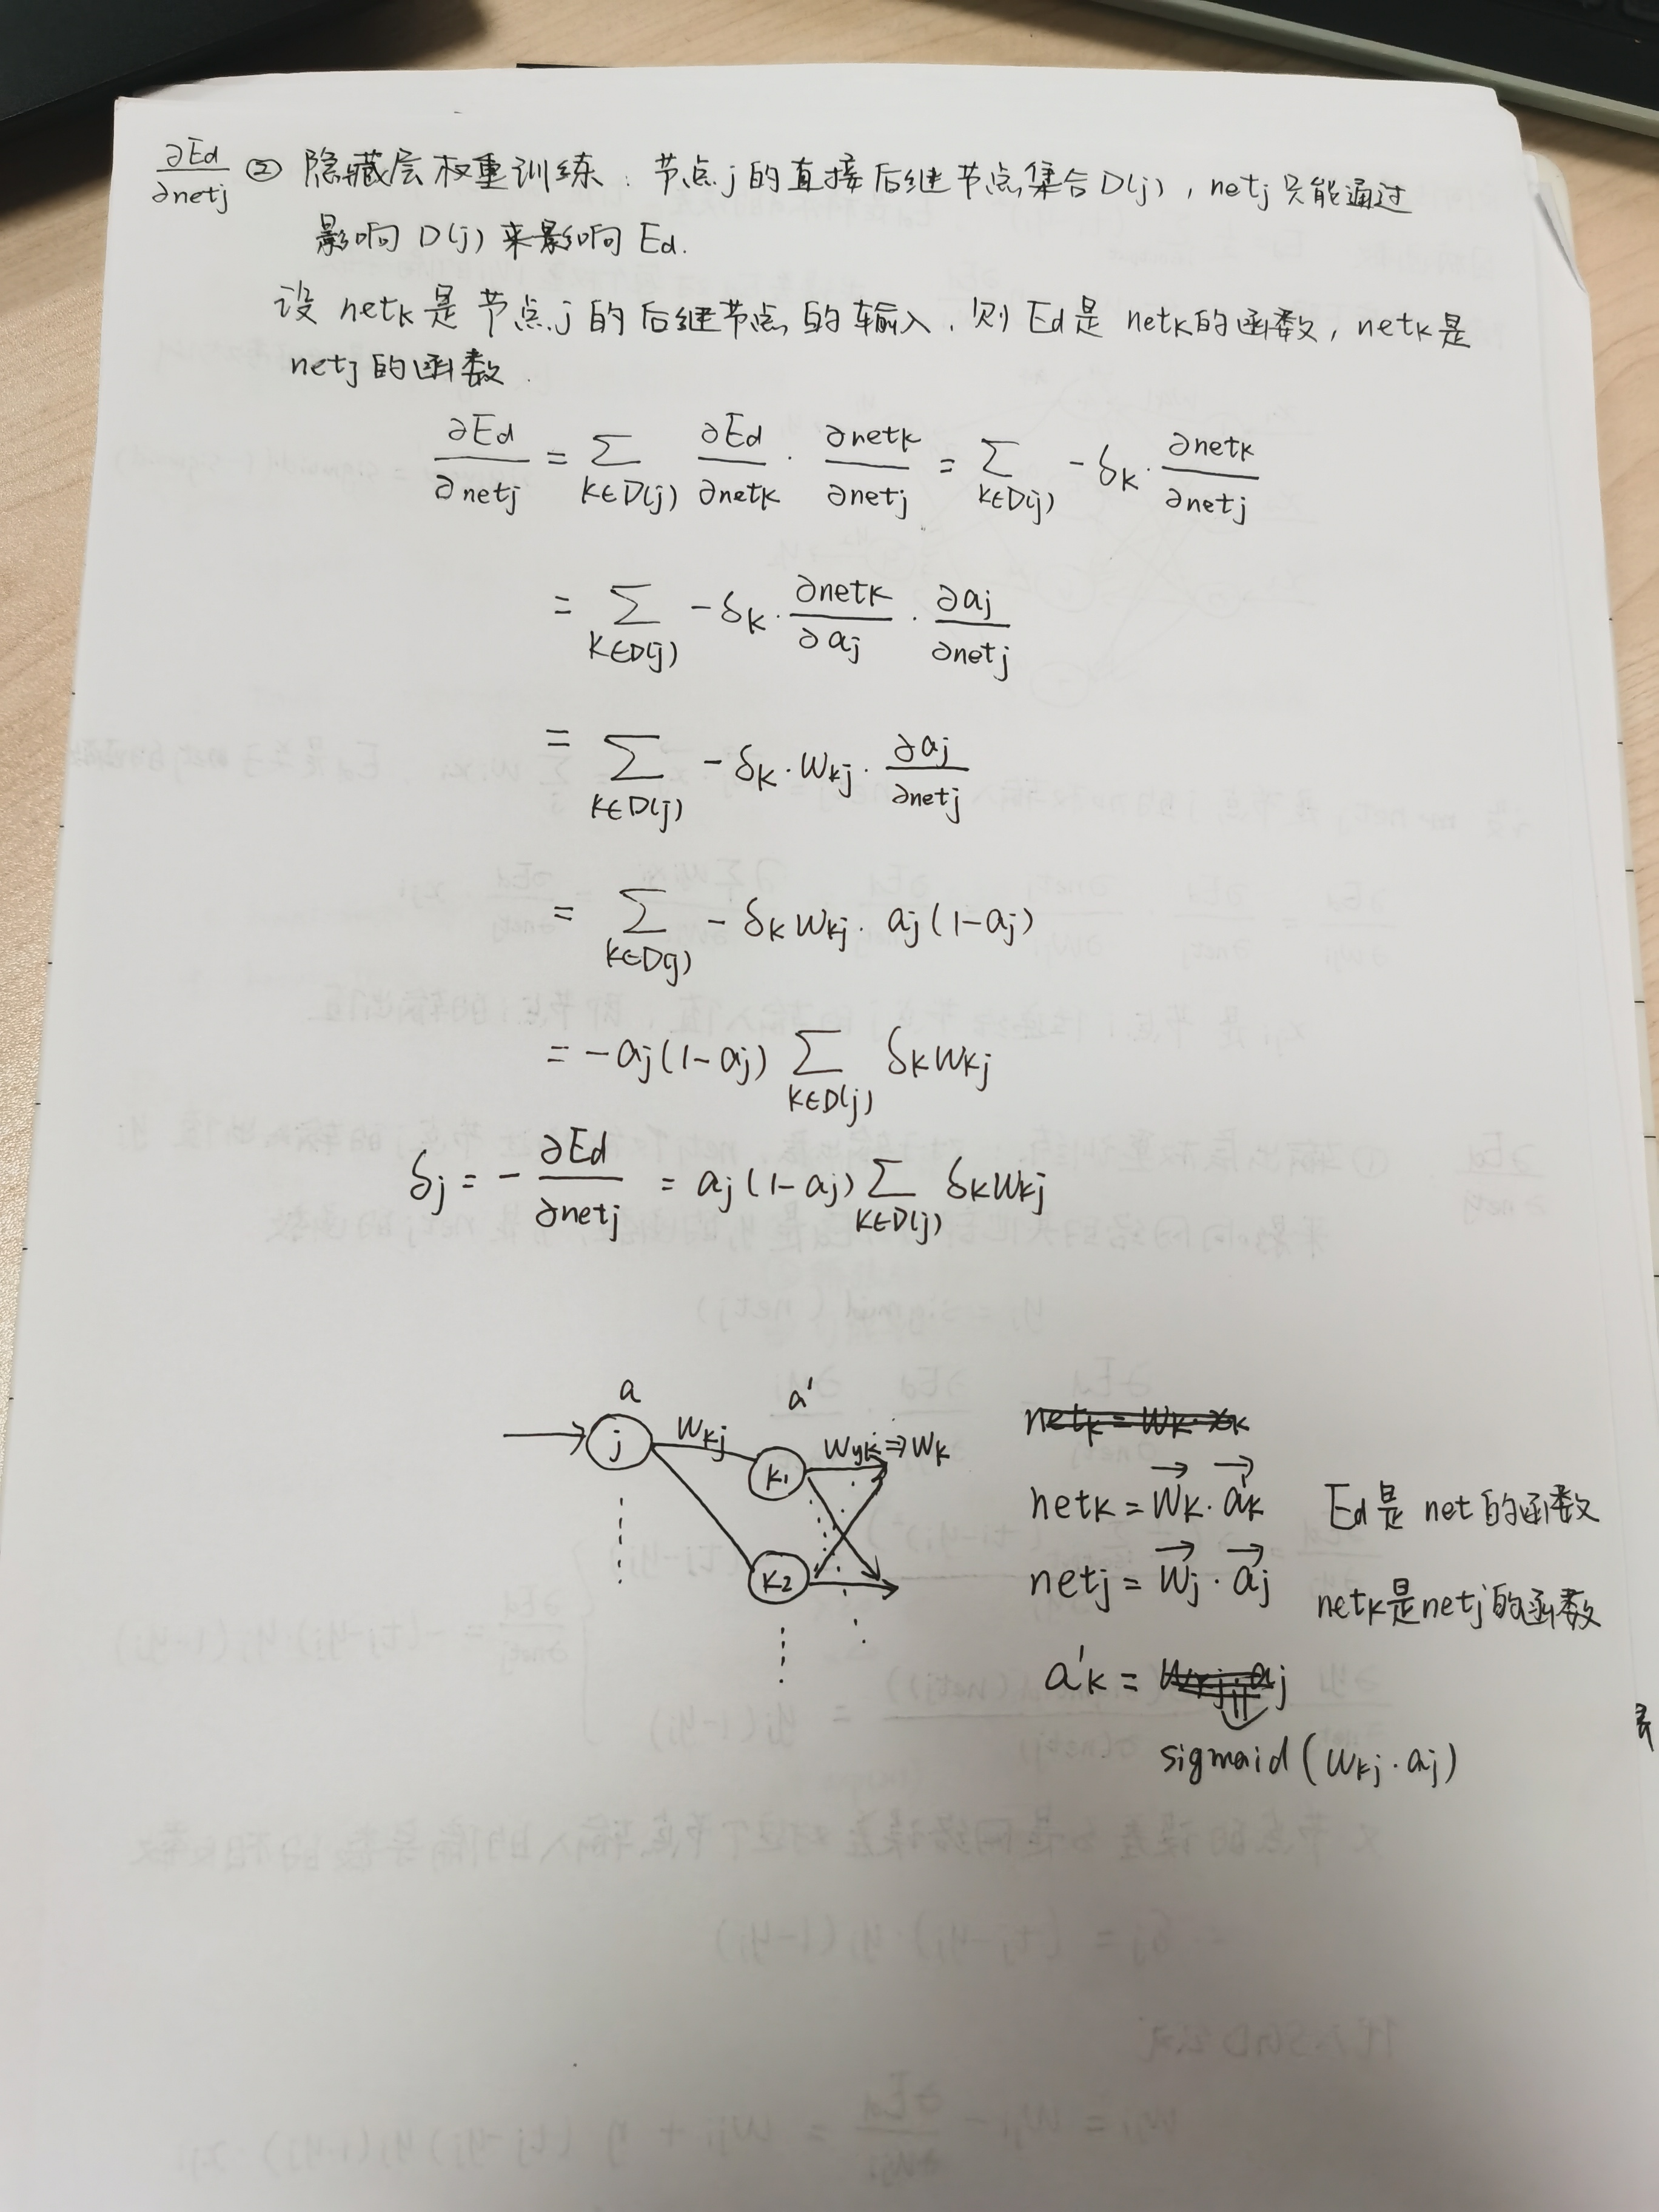 ∂Ed/∂netj ② 隐藏层权重训练：节点j的直接后继节点集合D(j)，netj只能通过
影响D(j)来影响Ed.
设netk是节点j的后继节点的输入，则Ed是netk的函数，netk是
netj的函数.
∂Ed/∂netj = Σ_{k∈D(j)} ∂Ed/∂netk · ∂netk/∂netj = Σ_{k∈D(j)} -δk · ∂netk/∂netj
= Σ_{k∈D(j)} -δk · ∂netk/∂aj · ∂aj/∂netj
= Σ_{k∈D(j)} -δk · Wkj · ∂aj/∂netj
= Σ_{k∈D(j)} -δk Wkj · aj(1-aj)
= -aj(1-aj) Σ_{k∈D(j)} δk Wkj
δj = -∂Ed/∂netj = aj(1-aj) Σ_{k∈D(j)} δk Wkj
a a'
j Wkj k1 Wyk⇒Wk
k2
netk = Wk·xk
netk = →Wk · →a'k Ed是net的函数
netj = →Wj · →aj netk是netj的函数
a'k = Wkj·aj
sigmaid(Wkj·aj)